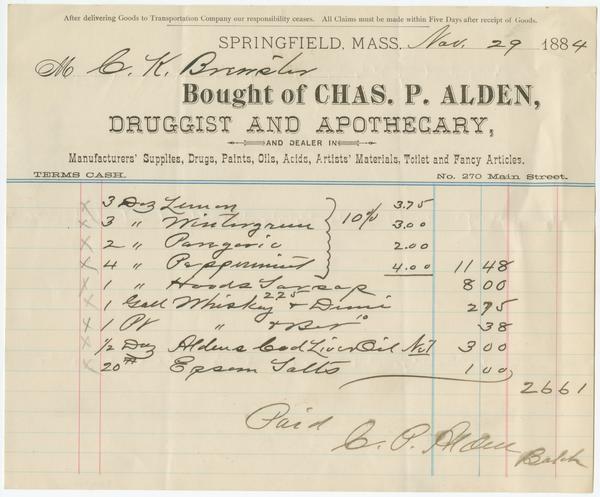 After delivering Goods to Transportation Company our responsibility ceases. All Claims must be made within Five Days after receipt of Goods.
SPRINGFIELD, MASS. Nov. 29 1884
M C. K. Brewster
Bought of CHAS. P. ALDEN,
DRUGGIST AND APOTHECARY,
AND DEALER IN
Manufacturers' Supplies, Drugs, Paints, Oils, Acids, Artists' Materials, Toilet and Fancy Articles.
TERMS CASH. No. 270 Main Street.
x 3 Doz Lemon 3.75
x 3 " Wintergreen 10% 3.00
x 2 " Paregoric 2.00
x 4 " Peppermint 4.00 11 48
x 1 " Hoods Sarsap 8 00
x 1 Gall Whiskey 2.25 + Demi 2 75
x 1 Pt " + Bot 10 38
x 1/2 Doz Aldens Cod Liver Oil Net 3 00
x 20 # Epsom Salts 1 00
26 61
Paid
C. P. Alden